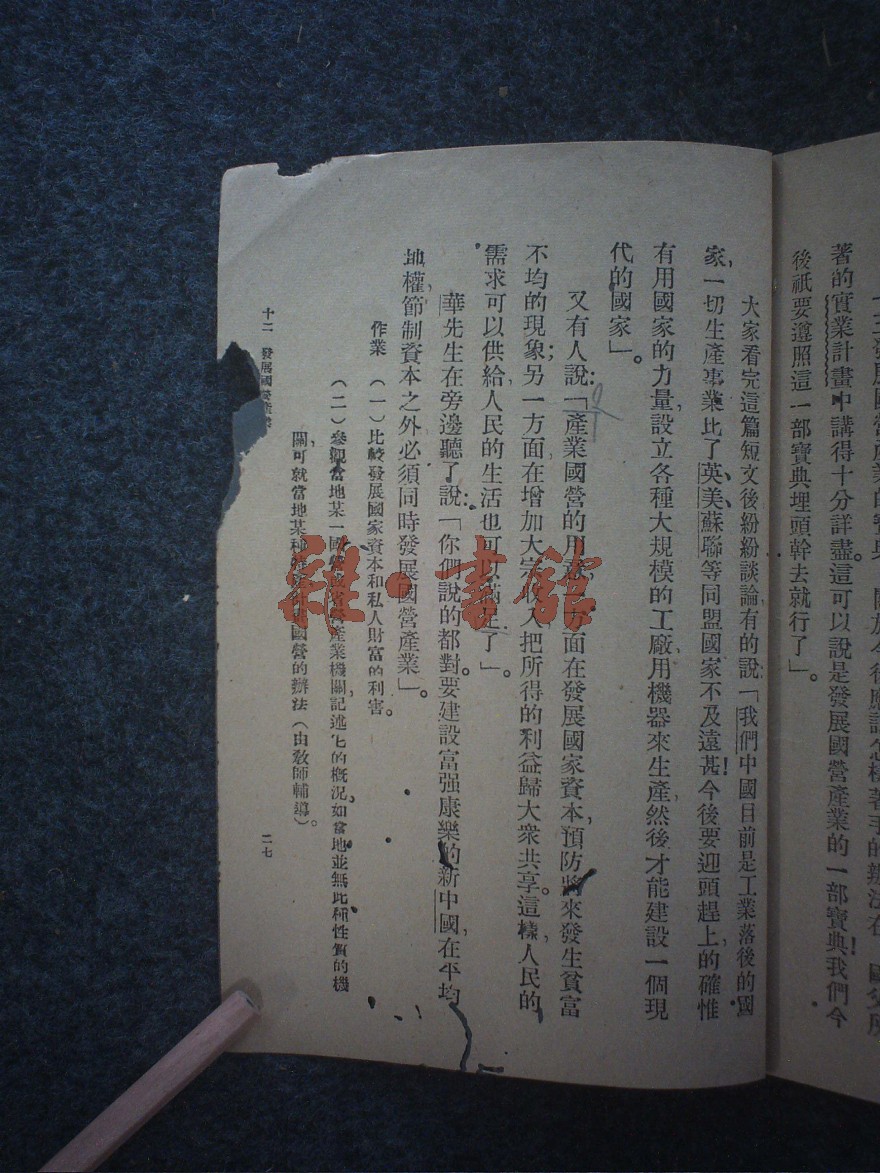 著的實業計畫中講得十分詳盡。這可以說是發展國營產業的一部寶典！我們今
後祇要遵照這一部寶典埋頭幹去就行了」。
大家看完這篇短文後，紛紛談論，有的說：「我們中國目前是工業落後的國
家，一切生產事業比了英、美、蘇聯等同盟國家不及遠甚！今後要迎頭趕上的確惟
有用國家的力量，設立各種大規模的工廠，用機器來生產，然後才能建設一個現
代的國家」。
又有人說：「產業國營的用意，一方面在發展國家資本，預防將來發生貧富
不均的現象；另一方面在增加大宗收入，把所得的利益歸大衆共享。這樣，人民的
需求可以供給，人民的生活也可以滿足了」。
華先生在旁邊聽了說：「你們說的都對，要建設富强康樂的新中國，在平均
地權，節制資本之外，必須同時發展國營產業」。
作業 （一）比較發展國家資本和私人財富的利害。
（二）參觀當地某一國營或省營產業機關，記述它的概況，如當地並無此種性質的機
關，可就當地某種國營的辦法（由敎師輔導）。
十二 發展國營產業
二七
雜·書館